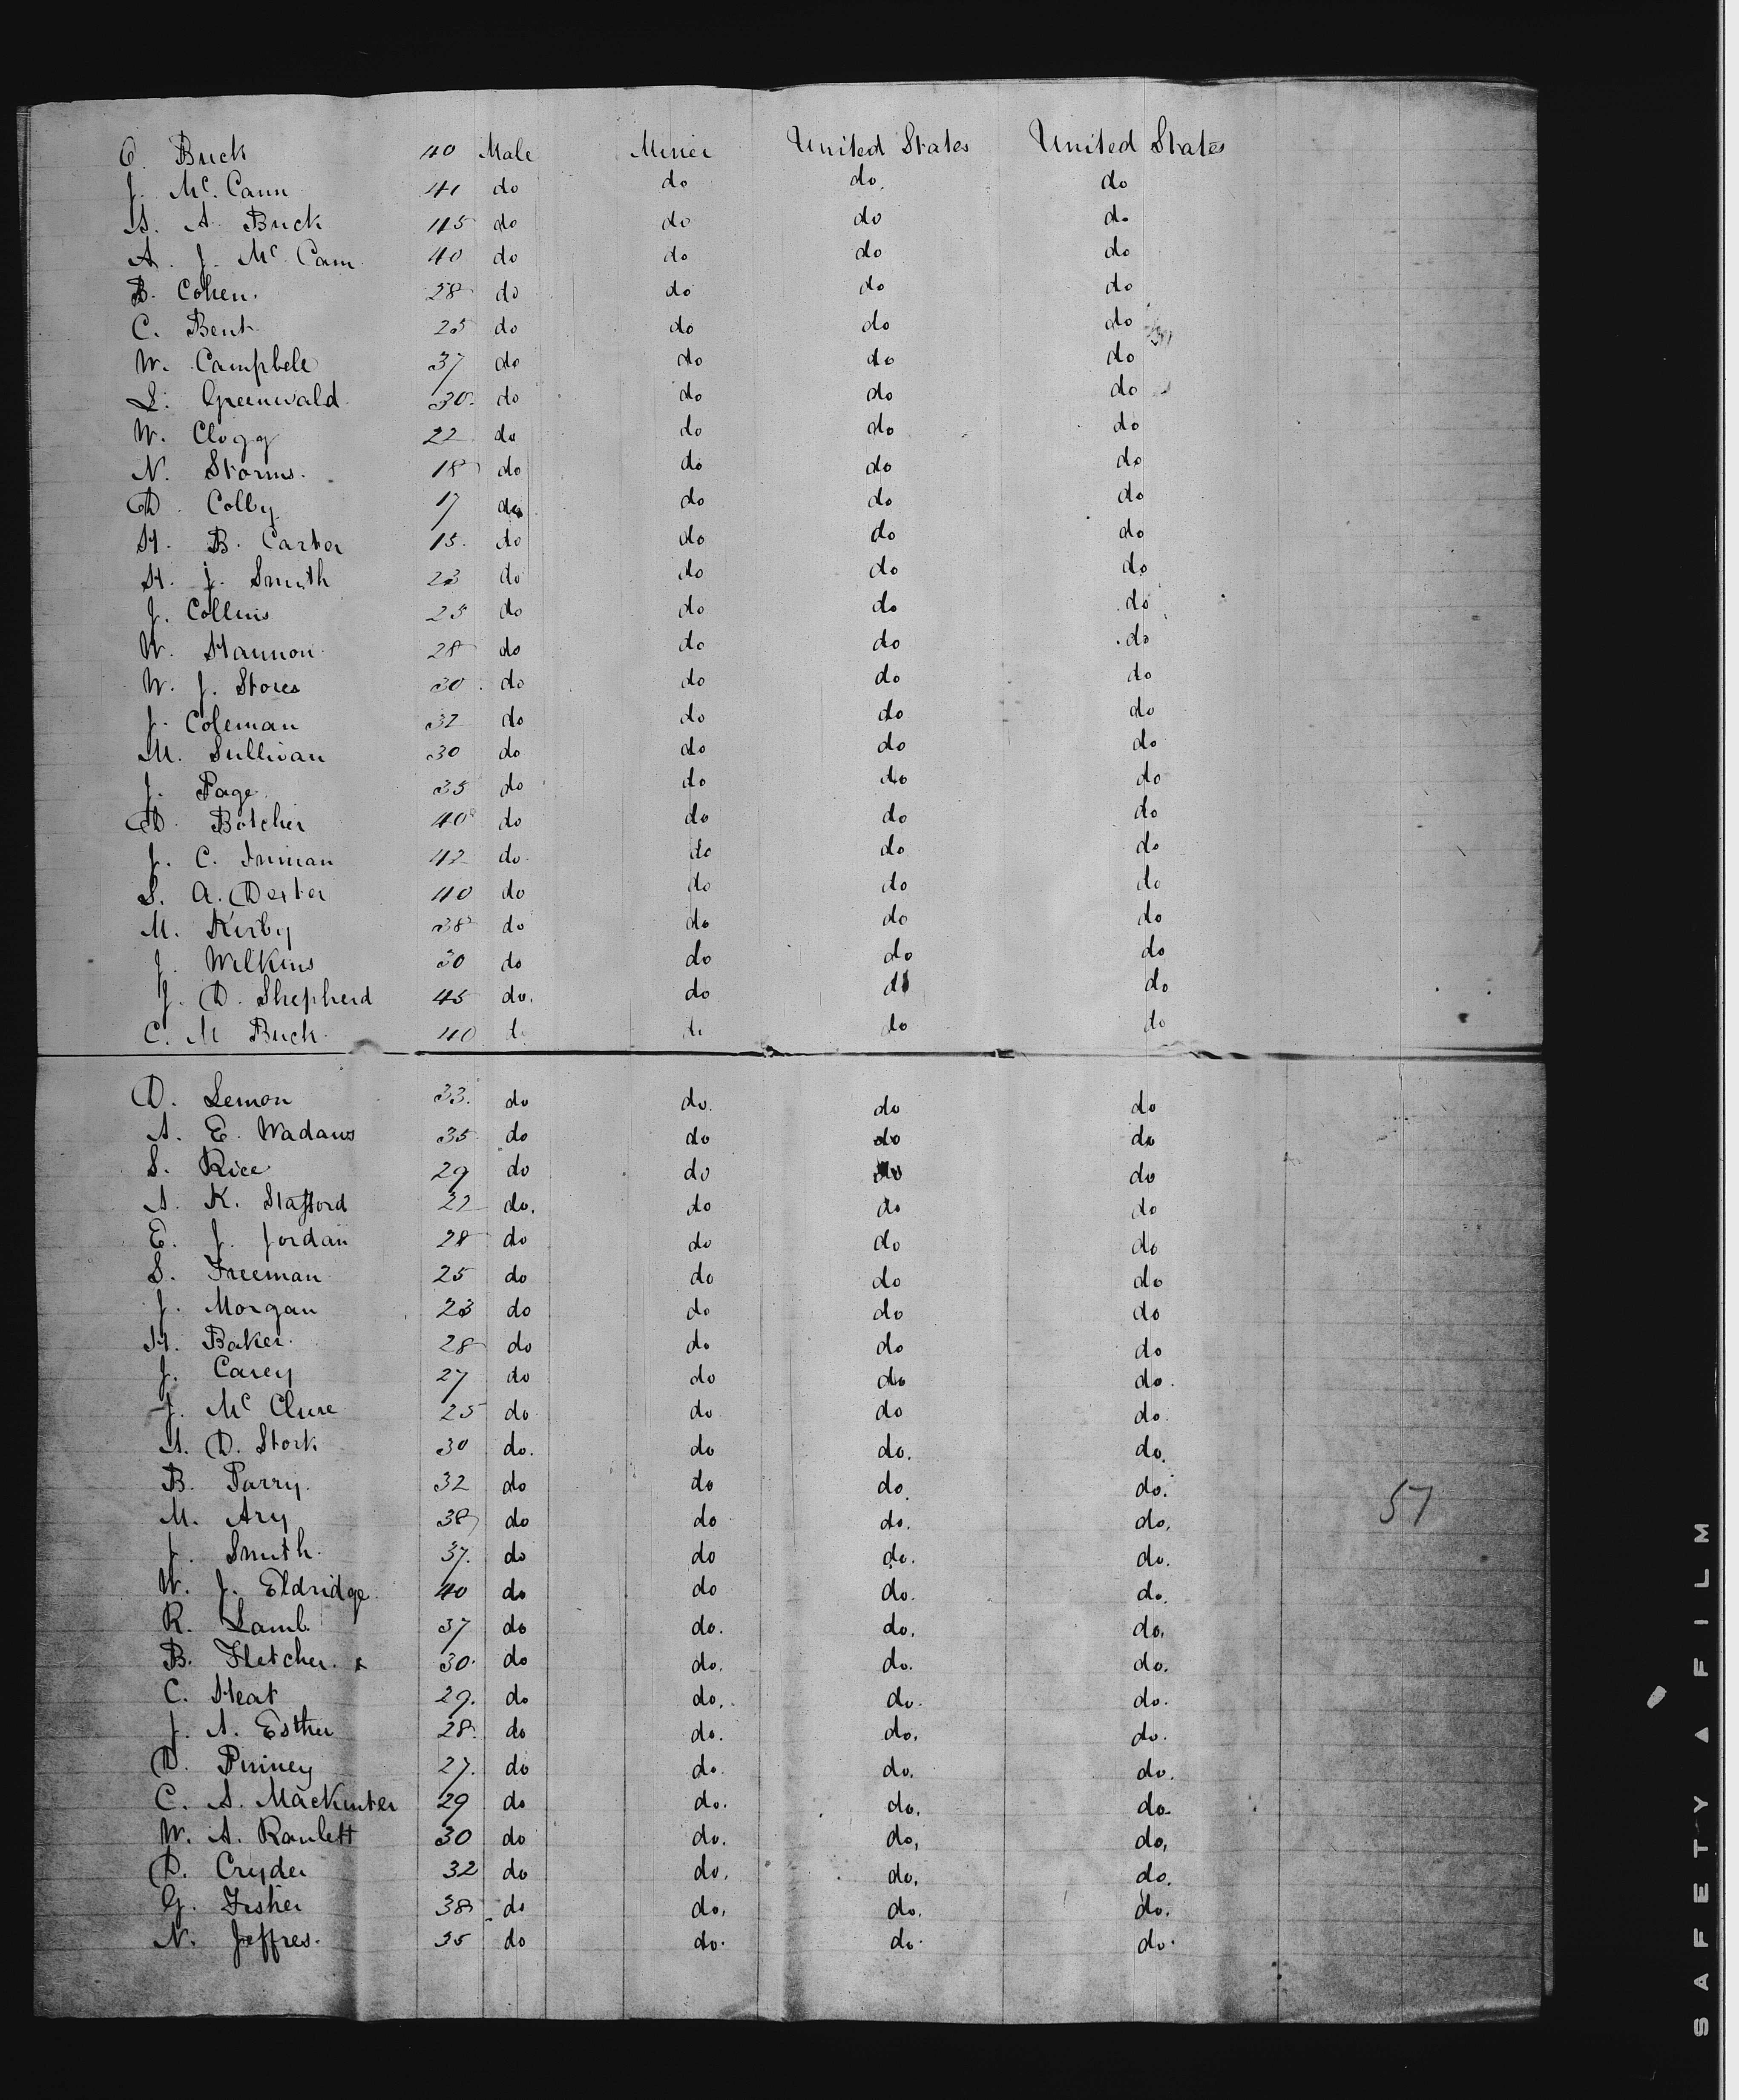 C. Buck 40 Male Miner United States United States
J. Mc. Cann 41 do do do. do
S. A. Buck 45 do do do do
A. J. Mc. Cann 40 do do do do
B. Cohen. 28 do do do do
C. Bent 25 do do do do
W. Campbell 37 do do do do
L. Greenwald 30. do do do do
W. Clogg 22 do do do do
N. Storms. 18 do do do do
D. Colby 17 do do do do
H. B. Carter 15. do do do do
H. J. Smith 23 do do do do
J. Collins 25 do do do do
W. Hannon 28 do do do do
W. J. Stores 30 do do do do
J. Coleman 32 do do do do
M. Sullivan 30 do do do do
J. Page 35 do do do do
D. Botcher 40 do do do do
J. C. Inman 42 do do do do
S. A. Dexter 40 do do do do
M. Kirby 38 do do do do
J. Wilkins 30 do do do do
J. D. Shepherd 45 do. do do do
C. M Buck. 40 do do
D. Lemon 33. do do. do do
A. E. Wadams 35 do do do do
S. Rice 29 do do do do
A. K. Stafford 22 do. do do do
E. J. Jordan 28 do do do do
S. Freeman 25 do do do do
J. Morgan 23 do do do do
H. Baker. 28 do do do do
J. Carey 27 do do do do.
J. Mc Clure 25 do do do do.
A. D. Stork 30 do. do do. do.
B. Parry. 32 do do do. do.
M. Ary 38 do do do. do. 57
J. Smith. 37. do do do. do.
W. J. Eldridge. 40 do do do. do.
R. Lamb 37 do do. do. do.
B. Fletcher. 30. do do. do. do.
C. Heat 29. do do. do. do.
J. A. Esther 28. do do. do. do.
D. Pinney 27. do do. do. do.
C. A. MacKinter 29 do do. do. do.
W. A. Ranlett 30 do do. do, do,
D. Cryder 32 do do. do. do.
G. Fisher 38 do do. do. do.
N. Jeffres. 35 do do. do. do.
SAFETY ▲ FILM